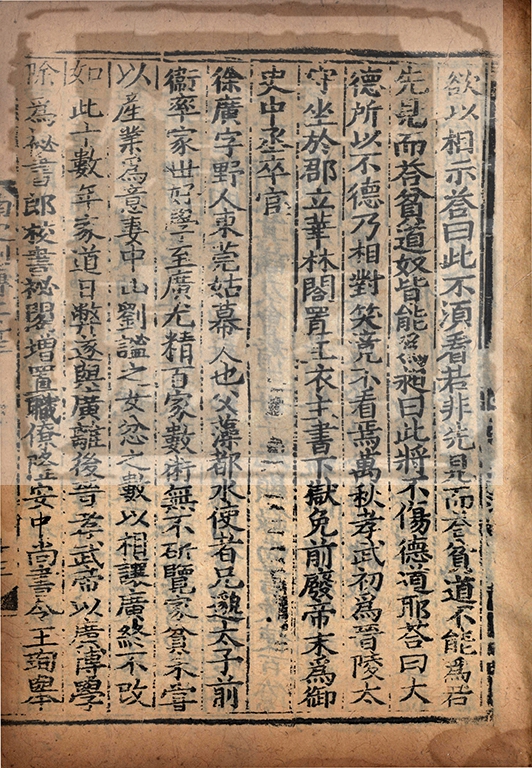 欲以相示荅曰此不湏看若非先見而荅貧道不能爲若
先見而荅貧道奴皆能昶曰此將不傷德道耶荅曰大
德所以不德乃相對笑竟不看焉萬秋孝武初爲晉陵太
守坐於郡立華林閣置主衣主書下獄免前廢帝末爲御
史中丞卒官
徐廣字野人東莞姑幕人也父藻都水使者兄邈太子前
衞率家世好學至廣尤精百家數術無不研覽家貧未甞
以產業爲意妻中山劉謐之女忿之數以相讓廣終不改
如此十數年家道日弊遂與廣離後晉孝武帝以廣博學
除爲祕書郎校書祕閣增置職僚隆安中尚書令王珣舉